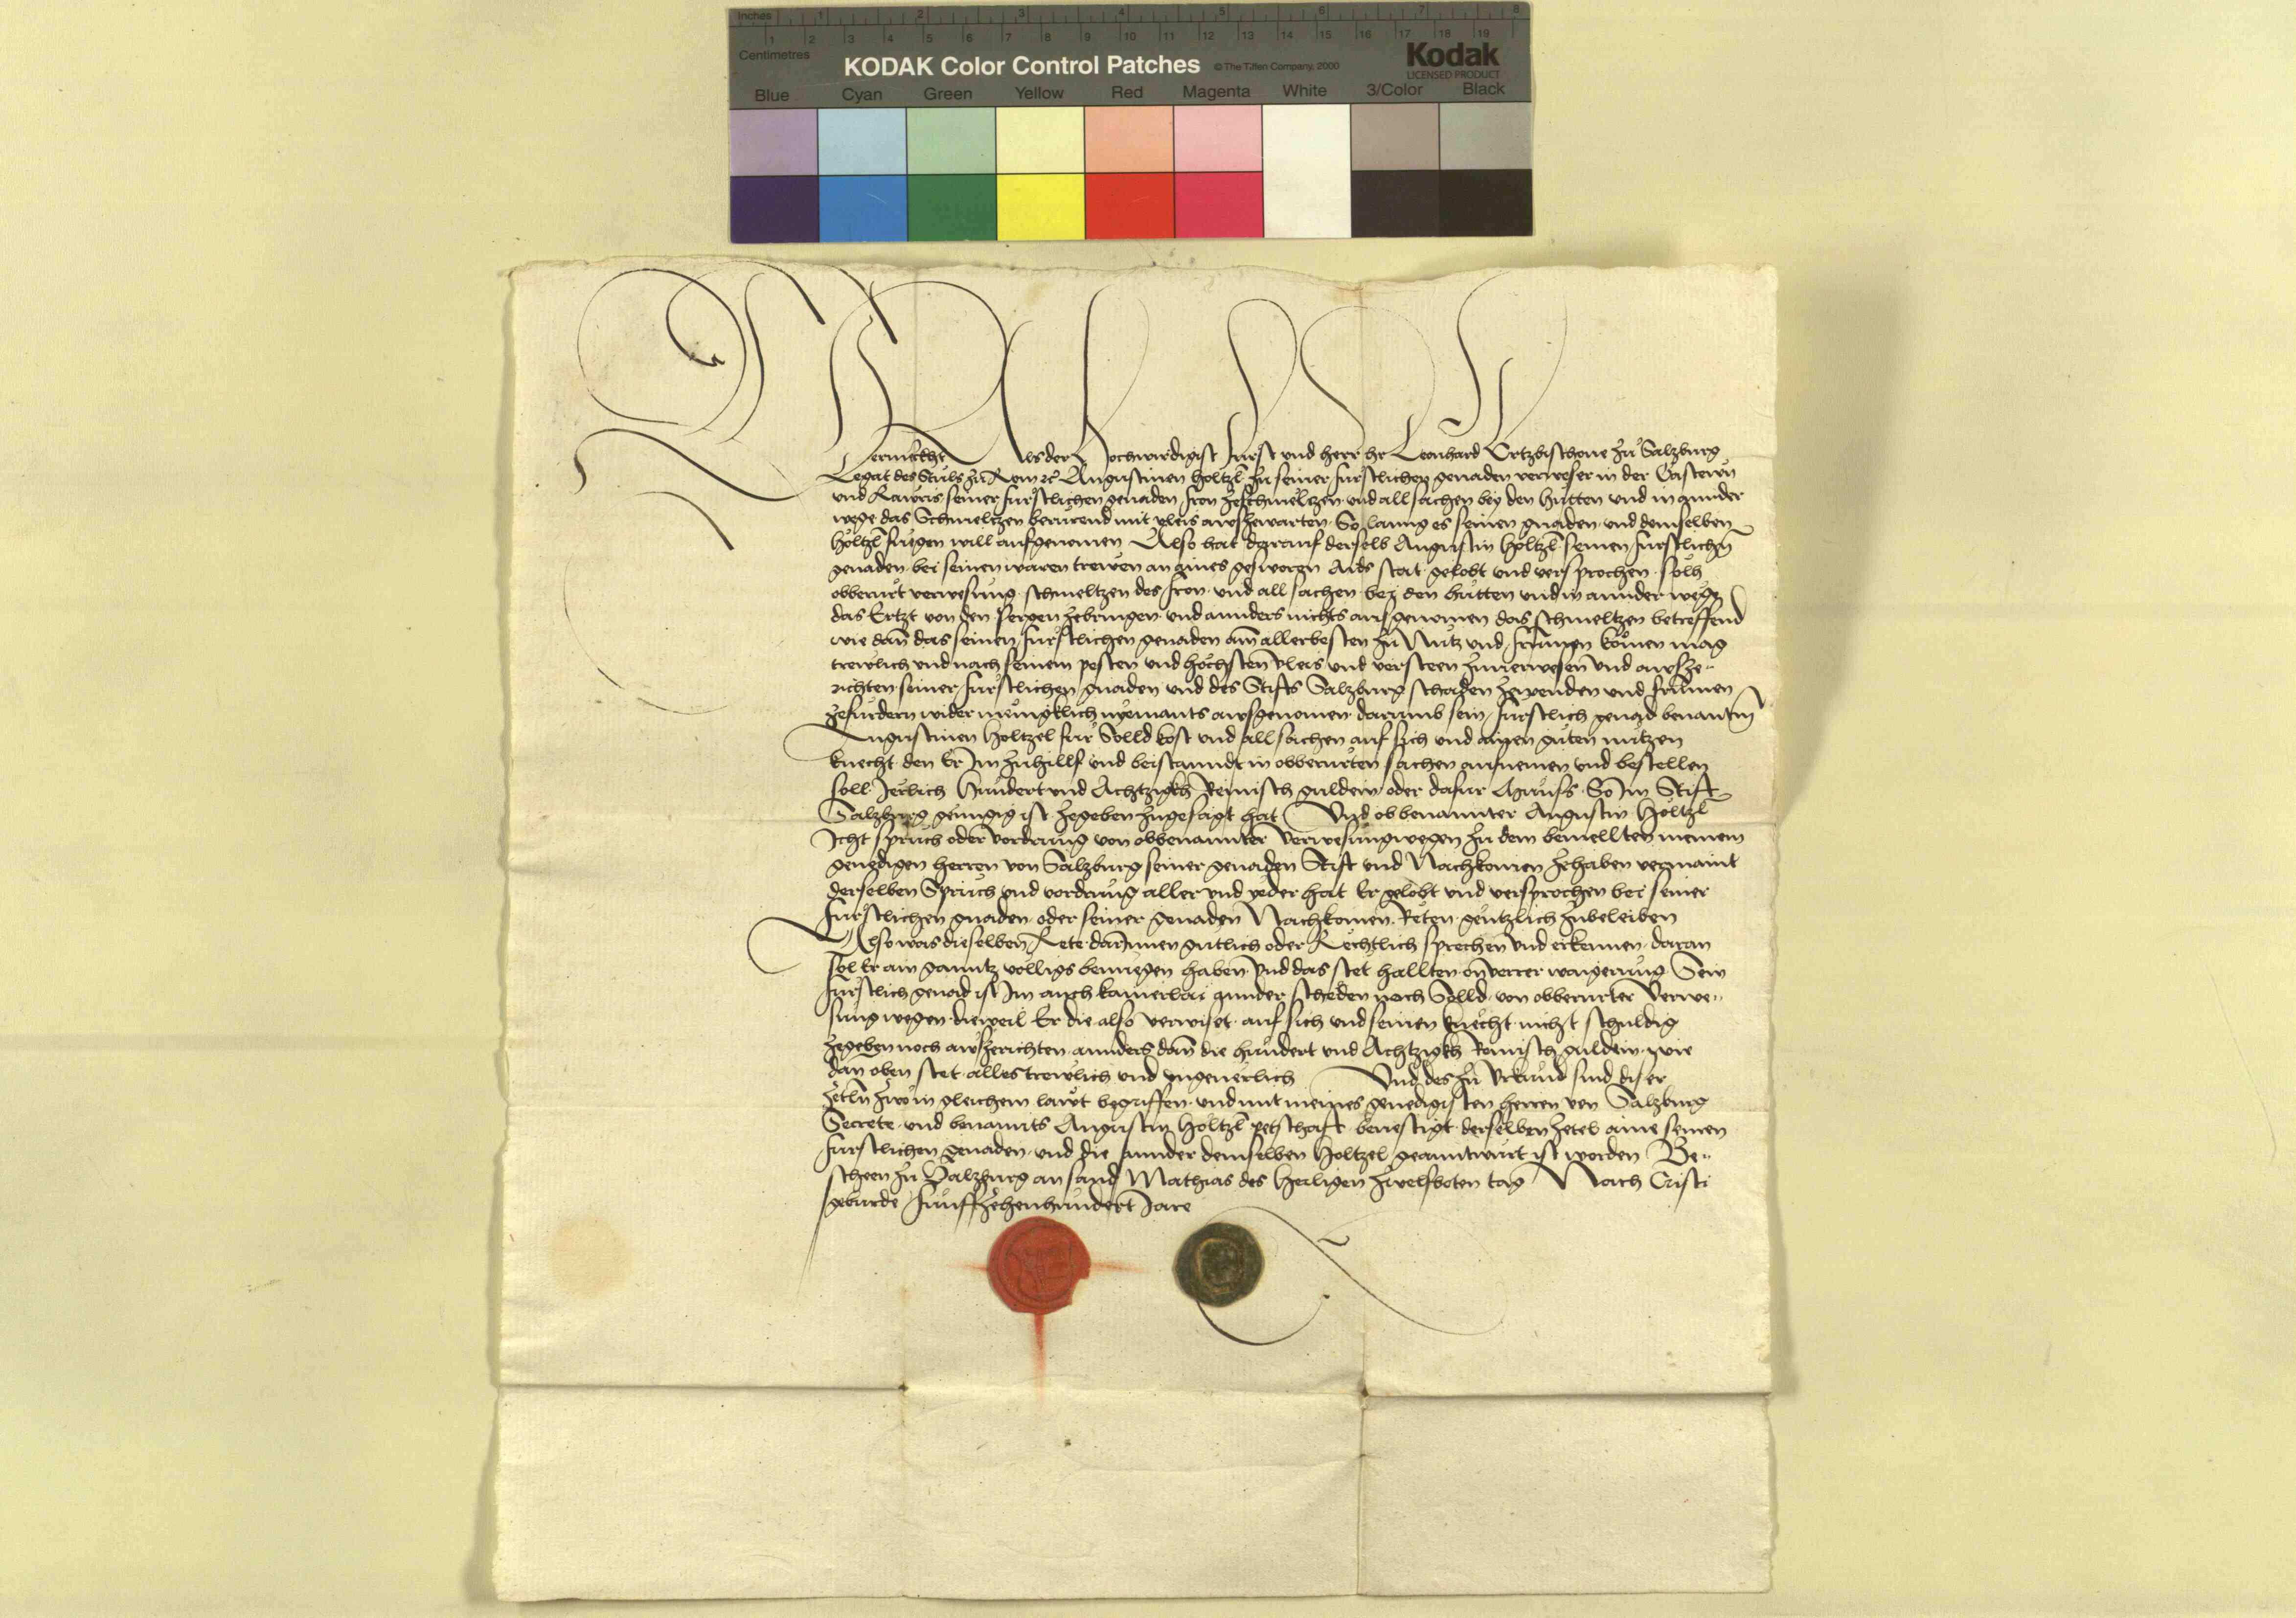 Inches 1 2 3 4 5 6 7 8
1 2 3 4 5 6 7 8 9 10 11 12 13 14 15 16 17 18 19
Centimetres
KODAK Color Control Patches © The Tiffen Company, 2000 Kodak
LICENSED PRODUCT
Blue Cyan Green Yellow Red Magenta White 3/Color Black
Vermerckht Als der Hochwirdigist Fürst und herr hr Leonhard Ertzbischoue zů Saltzburg
Legat des Stůls zů Rom ꝛc Augustinen höltzl zu seiner fürstlichen genaden verweser in der Gastewn
und Rawris seiner fürstlichen genaden fron zeschmeltzen und all sachen bey den hütten und in annder
wege das Schmeltzen berürend mit vleis auszewarten So lanng es seinen gnaden und demselben
höltzl fuegen will aufgenomen Also hat darauf derselb Augustin höltzl seinen fürstlichn
genaden bei seinen waren trewen an aines gesworn Aids stat gelobt und versprochen solh
obberürt verwesung schmeltzen des fron und all sachen bey den hütten und in annder wege
das Ertzt von den pergen zebringen und annders nichts ausgenomen das schmeltzen betreffend
wie dan das seinen fürstlichen genaden am allerbesten zu Nutz und frumen komen mag
trewlich und nach seinem pesten und höchsten vleis und versteen zuuerwesen und ausze-
richten seiner fürstlichen gnaden und des Stifts Saltzburg schaden zewenden und frumen
zefürdern wider menigklich nyemants ausgenomen darumb sein fürstlich genad benantn
Augustinen höltzel für Solld kost und all sachen auf sich und ainen guten nutzen
knecht den Er Im zuhillf und beistanndt in obberürten sachen aufnemen und bestellen
soll Jerlich Hundert und Achtzigkh Reinisch guldein oder dafür Müntz So Im Stift
Saltzburg genngig ist zegeben zugesagt hat Und ob benannter Augustin Höltzl
Icht spruch oder vordrung von obbenannter Verwesung wegen zu dem bemellten meinem
genedigen herren von Saltzburg seiner genaden Stift und Nachkomen zehaben vermaint
derselben Sprüch und vordrung aller und yeder hat Er gelobt und versprochen bei seiner
fürstlichen gnaden oder seiner genaden Nachkomen Reten genntzlich zubeleiben
Also was dieselben Rete darinnen gutlich oder Rechtlich sprechen und erkennen daran
sol Er ain ganntz völligs benuegen haben Und das stet hallten on verrer waigerung Sein
fürstlich genad ist Im auch kainerlai annder scheden noch Solld von obberürter Verwe-
sung wegen dieweil Er die also verwiset auf sich und seinen knecht nicht schuldig
zegeben noch auszerichten annders dan die hundert und Achtzigkh Reinisch guldein wie
dan oben stet alles trewlich und ungeuerlich Und des zu Urkund sind diser
zetln zwo in gleichem lawt begriffen und mit meines genedigisten herren von Saltzburg
Secrete und benannts Augustin höltzl petschaft beuestigt derselben zetel aine seinen
fürstlichen genaden und die annder demselben höltzel geanntwurt ist worden Be-
scheen zu Saltzburg an sand Mathias des heiligen zwelfboten tag Nach Cristi
geburde Funffzehenhundert Jare